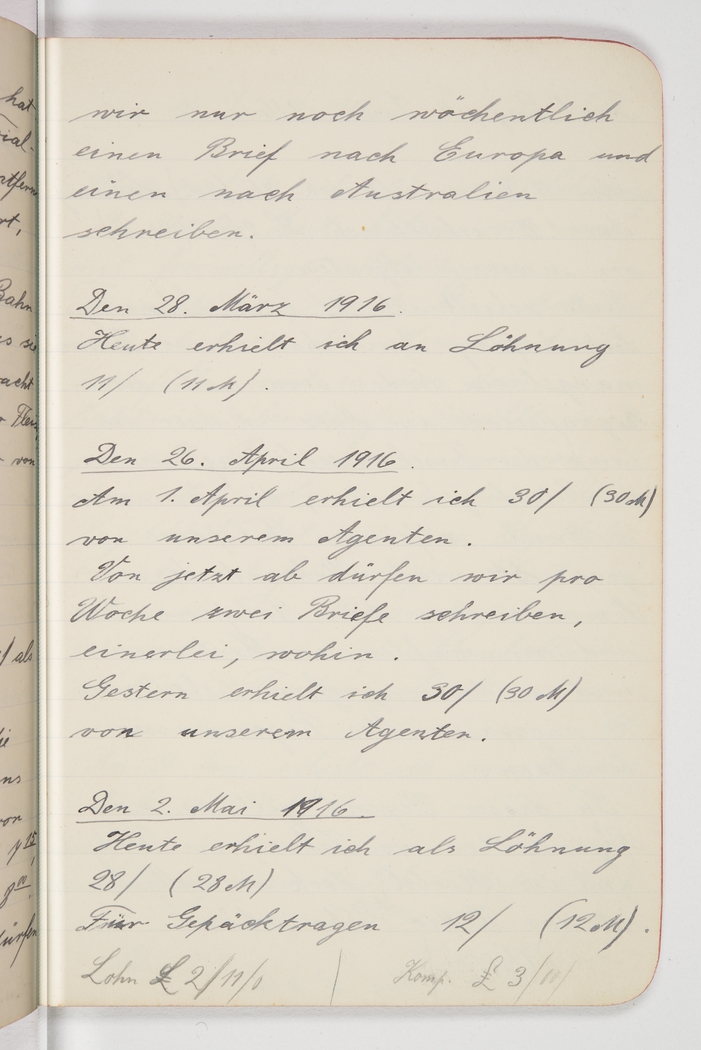 hat
ial-
ntfern
rt,
Bahn
es sie
acht
von
/ als
ie
ns
von
ürfen
wir nur noch wöchentlich
einen Brief nach Europa und
einen nach Australien
schreiben.
Den 28. März 1916.
Heute erhielt ich an Löhnung
11/ (11 M).
Den 26. April 1916.
Am 1. April erhielt ich 30/ (30 M)
von unserem Agenten.
Von jetzt ab dürfen wir pro
Woche zwei Briefe schreiben,
einerlei, wohin.
Gestern erhielt ich 30/ (30 M)
von unserem Agenten.
Den 2. Mai 1916.
Heute erhielt ich als Löhnung
28/ (28 M)
Für Gepäcktragen 12/ (12 M).
Lohn £ 2/11/0 | Komp. £ 3/